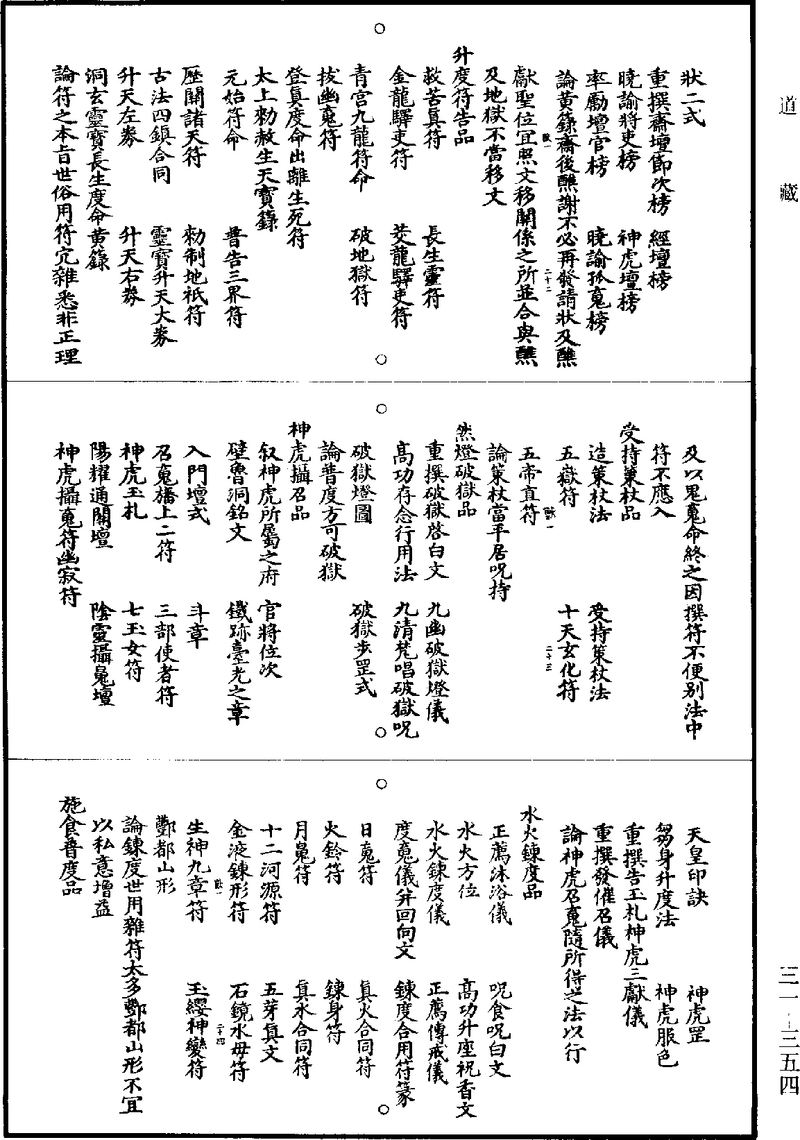 道藏
狀二式
重撰齋壇節次榜　經壇榜
曉諭將吏榜　神虎壇榜
率勵壇官榜　曉諭孤䰟榜
論黃籙齋後醮謝不必再發請狀及醮
獻聖位宜照文移關係之所並合與醮
及地獄不當移文
升度符告品
救苦眞符　長生靈符
金龍驛吏符　茭龍驛吏符
青宮九龍符命　破地獄符
拔幽䰟符
登眞度命出離生死符
太上勑赦生天寶籙
元始符命　普告三界符
歷關諸天符　勑制地祇符
古法四鎮合同　靈寶升天大券
升天左券　升天右券
洞玄靈寶長生度命黃籙
論符之本旨世俗用符宂雜悉非正理
及以鬼䰟命終之因撰符不便别法中
符不應入
受持策杖品
造策杖法　受持策杖法
五嶽符　十天玄化符
五帝直符
論策杖當平居呪持
然燈破獄品
重撰破獄啓白文　九幽破獄燈儀
高功存念行用法　九清梵唱破獄呪
破獄燈圖　破獄步罡式
論普度方可破獄
神虎攝召品
叙神虎所屬之府　官將位次
壁魯洞銘文　鐵跡臺光之章
入門壇式　斗章
召䰟旛上二符　三部使者符
神虎玉札　七玉女符
陽耀通關壇　陰靈攝䰟壇
神虎攝䰟符幽寂符
天皇印訣　神虎罡
芻身升度法　神虎服色
重撰告玉札神虎三獻儀
重撰發催召儀
論神虎召䰟隨所得之法以行
水火鍊度品
正薦沐浴儀　呪食呪白文
水火方位　高功升座祝香文
水火鍊度儀　正薦傳戒儀
度䰟儀并回向文　鍊度合用符篆
日䰟符　眞火合同符
火鈴符　鍊身符
月䰟符　眞水合同符
十二河源符　五芽眞文
金液鍊形符　石鏡水母符
生神九章符　玉纓神變符
酆都山形
論鍊度世用雜符太多酆都山形不宜
以私意增益
施食普度品
三一—三五四